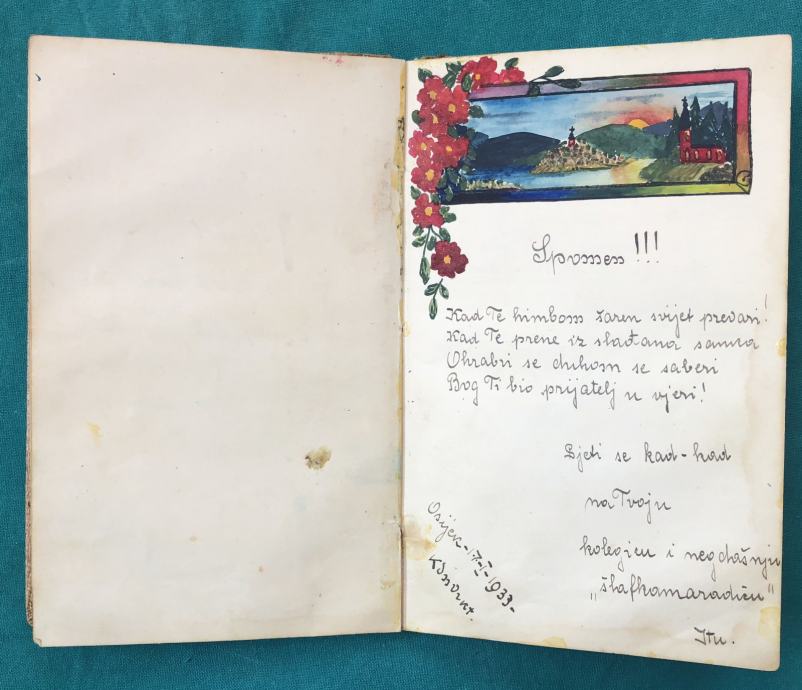 Spomen!!!
Kad Te himbom zaren svijet prevari!
Kad Te prene iz slađana sanna
Ohrabri se duhom se saberi
Bog Ti bio prijatelj u vjeri!
Sjeti se kad-kad
na Tvoju
kolegicu i negdašnju
„šlafkamaradicu"
Itu.
Osijek-17-I-1933-